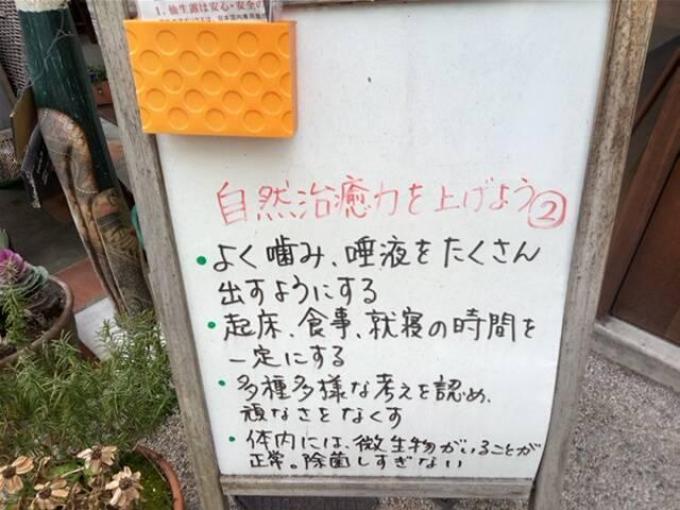 1. 仙生露は安心・安全の
自然治癒力を上げよう②
・よく噛み、唾液をたくさん
出すようにする
・起床、食事、就寝の時間を
一定にする
・多種多様な考えを認め、
頑なさをなくす
・体内には、微生物がいることが
正常。除菌しすぎない